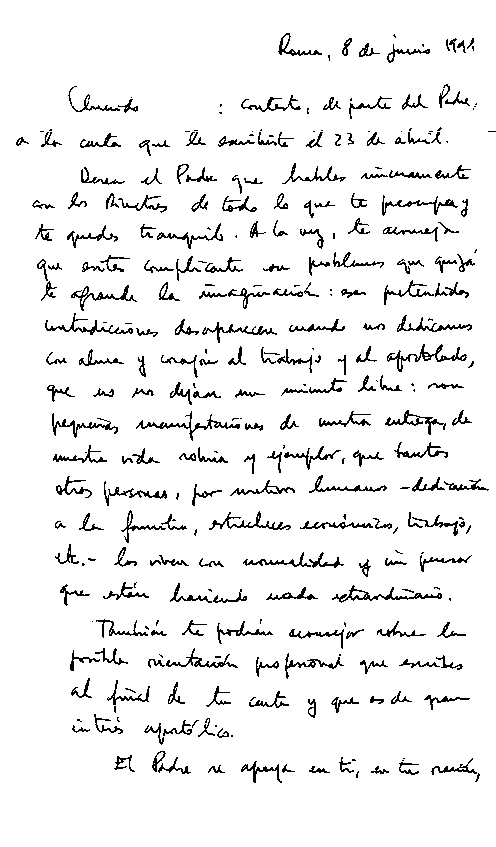 Roma, 8 de junio 1991
Querido : contesto, de parte del Padre,
a la carta que le escribiste el 23 de abril.
Desea el Padre que hables sinceramente
con los Directores de todo lo que te preocupa y
te quedes tranquilo. A la vez, te aconseja
que evites complicarte con problemas que quizá
te agrande la imaginación: esas pretendidas
contradicciones desaparecen cuando nos dedicamos
con alma y corazón al trabajo y al apostolado,
que no nos dejan un minuto libre: son
pequeñas manifestaciones de nuestra entrega, de
nuestra vida sobria y ejemplar, que tantas
otras personas, por motivos humanos -dedicación
a la familia, estrecheces económicas, trabajo,
etc.- las viven con normalidad y sin pensar
que están haciendo nada extraordinario.
También te podrán aconsejar sobre la
posible orientación profesional que escribes
al final de tu carta y que es de gran
interés apostólico.
El Padre se apoya en ti, en tu oración,